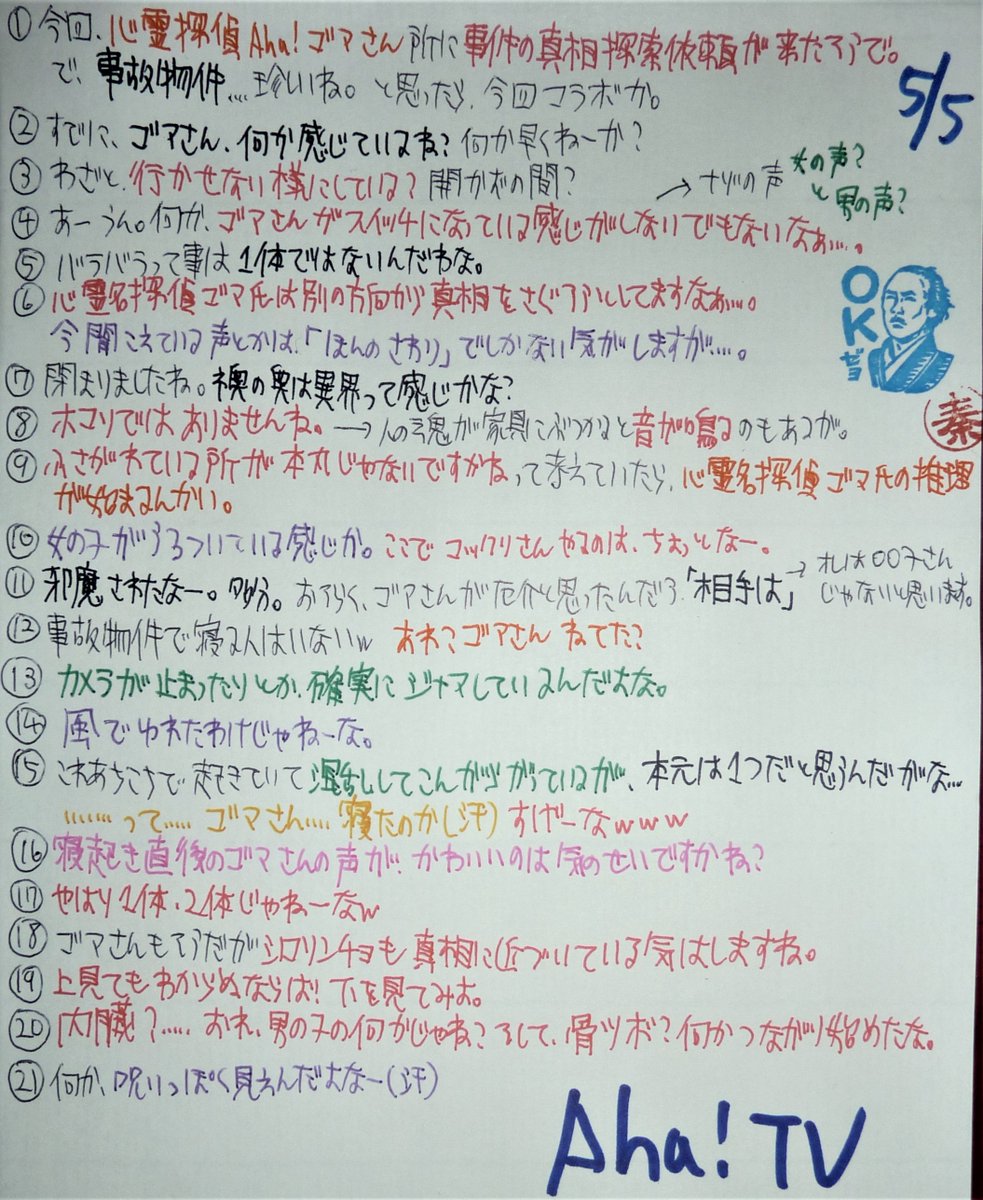 ① 今回、心霊探偵Aha!ゴマさん所に事件の真相探索依頼が来たそうで。
で、事故物件....珍いね。と思ったら、今回コラボか。
5/5
② すでに、ゴマさん、何か感じているね?何か早くねーか?
③ わざと、行かせない様にしている?開かずの間?
→ナゾの声 女の声?
と男の声?
④ あーうん。何か、ゴマさんがスイッチになっている感じがしないでもないなぁ....。
⑤ バラバラって事は1体ではないんだわな。
⑥ 心霊名探偵ゴマ氏は別の方向から真相をさぐろうとしてますなぁ....。
今聞こえている声とかは、「ほんのさわり」でしかない気がしますが....。
OKゼヨ
⑦ 閉まりましたね。襖の奥は異界って感じかな?
⑧ ホコリではありませんね。→人の魂が家具にぶつかると音が鳴るのもあるが。
秦
⑨ ふさがれている所が本丸じゃないですかねって考えていたら、心霊名探偵ゴマ氏の推理
が始まるんかい。
⑩ 女の子がうろついている感じか。ここでコックリさんやるのは、ちょっとなー。
⑪ 邪魔されたなー。多分。おそらく、ゴマさんが厄介と思ったんだろ「相手は」
→オレは〇〇子さん
じゃないと思います。
⑫ 事故物件で寝る人はいないw あれ?ゴマさんねてた?
⑬ カメラが止まったりとか、確実にジャマしているんだよな。
⑭ 風でゆれたわけじゃねーな。
⑮ これあちこちで起きていて混乱してこんがらがっているが、本元は1つだと思うんだがな...
.......って.....ゴマさん....寝たのか(汗)すげーなwww
⑯ 寝起き直後のゴマさんの声が、かわいいのは気のせいですかね?
⑰ やはり1体、2体じゃねーなw
⑱ ゴマさんもそうだがシロリンチョも真相に近づいている気はしますね。
⑲ 上見てもわからぬならば!下を見てみよ。
⑳ 内臓?.....おれ、男の子の何かじゃね?そして、骨ツボ?何かつながり始めたな。
㉑ 何か、呪いっぽく見えんだよなー(汗)
Aha! TV